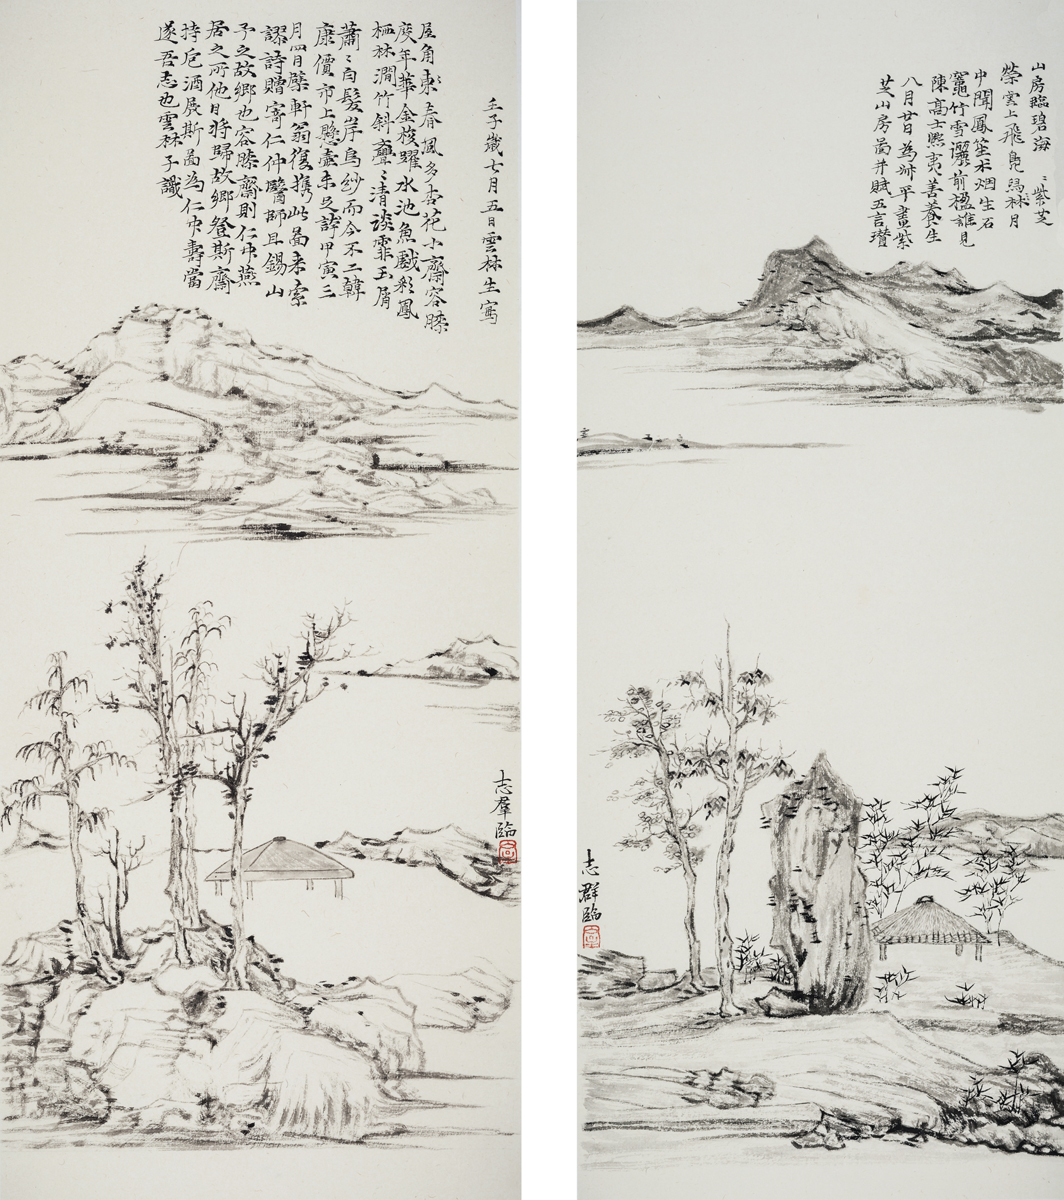 壬子歲七月五日雲林生寫
屋角東春風多杏花小齋容膝
度年華金梭躍水池魚戲彩鳳
栖林澗竹斜亹〻清談霏玉屑
蕭〻白髮岸烏紗而今不二韓
康價市上懸壺未足誇甲寅三
月四日檗軒翁復攜此啚來索
謬詩贈寄仁仲醫師且錫山
予之故鄉也容膝齋則仁中燕
居之所他日將歸故鄉登斯齋
持卮酒展斯啚為仁中壽當
遂吾志也雲林子識
志羣臨
山房臨碧海〻紫芝
榮雲上飛鳧舄林月
中聞鳳笙术烟生石
竈竹雪灑前楹誰見
陳高士熙夷善養生
八月廿日為沖平畫紫
芝山房啚并賦五言瓚
志群臨